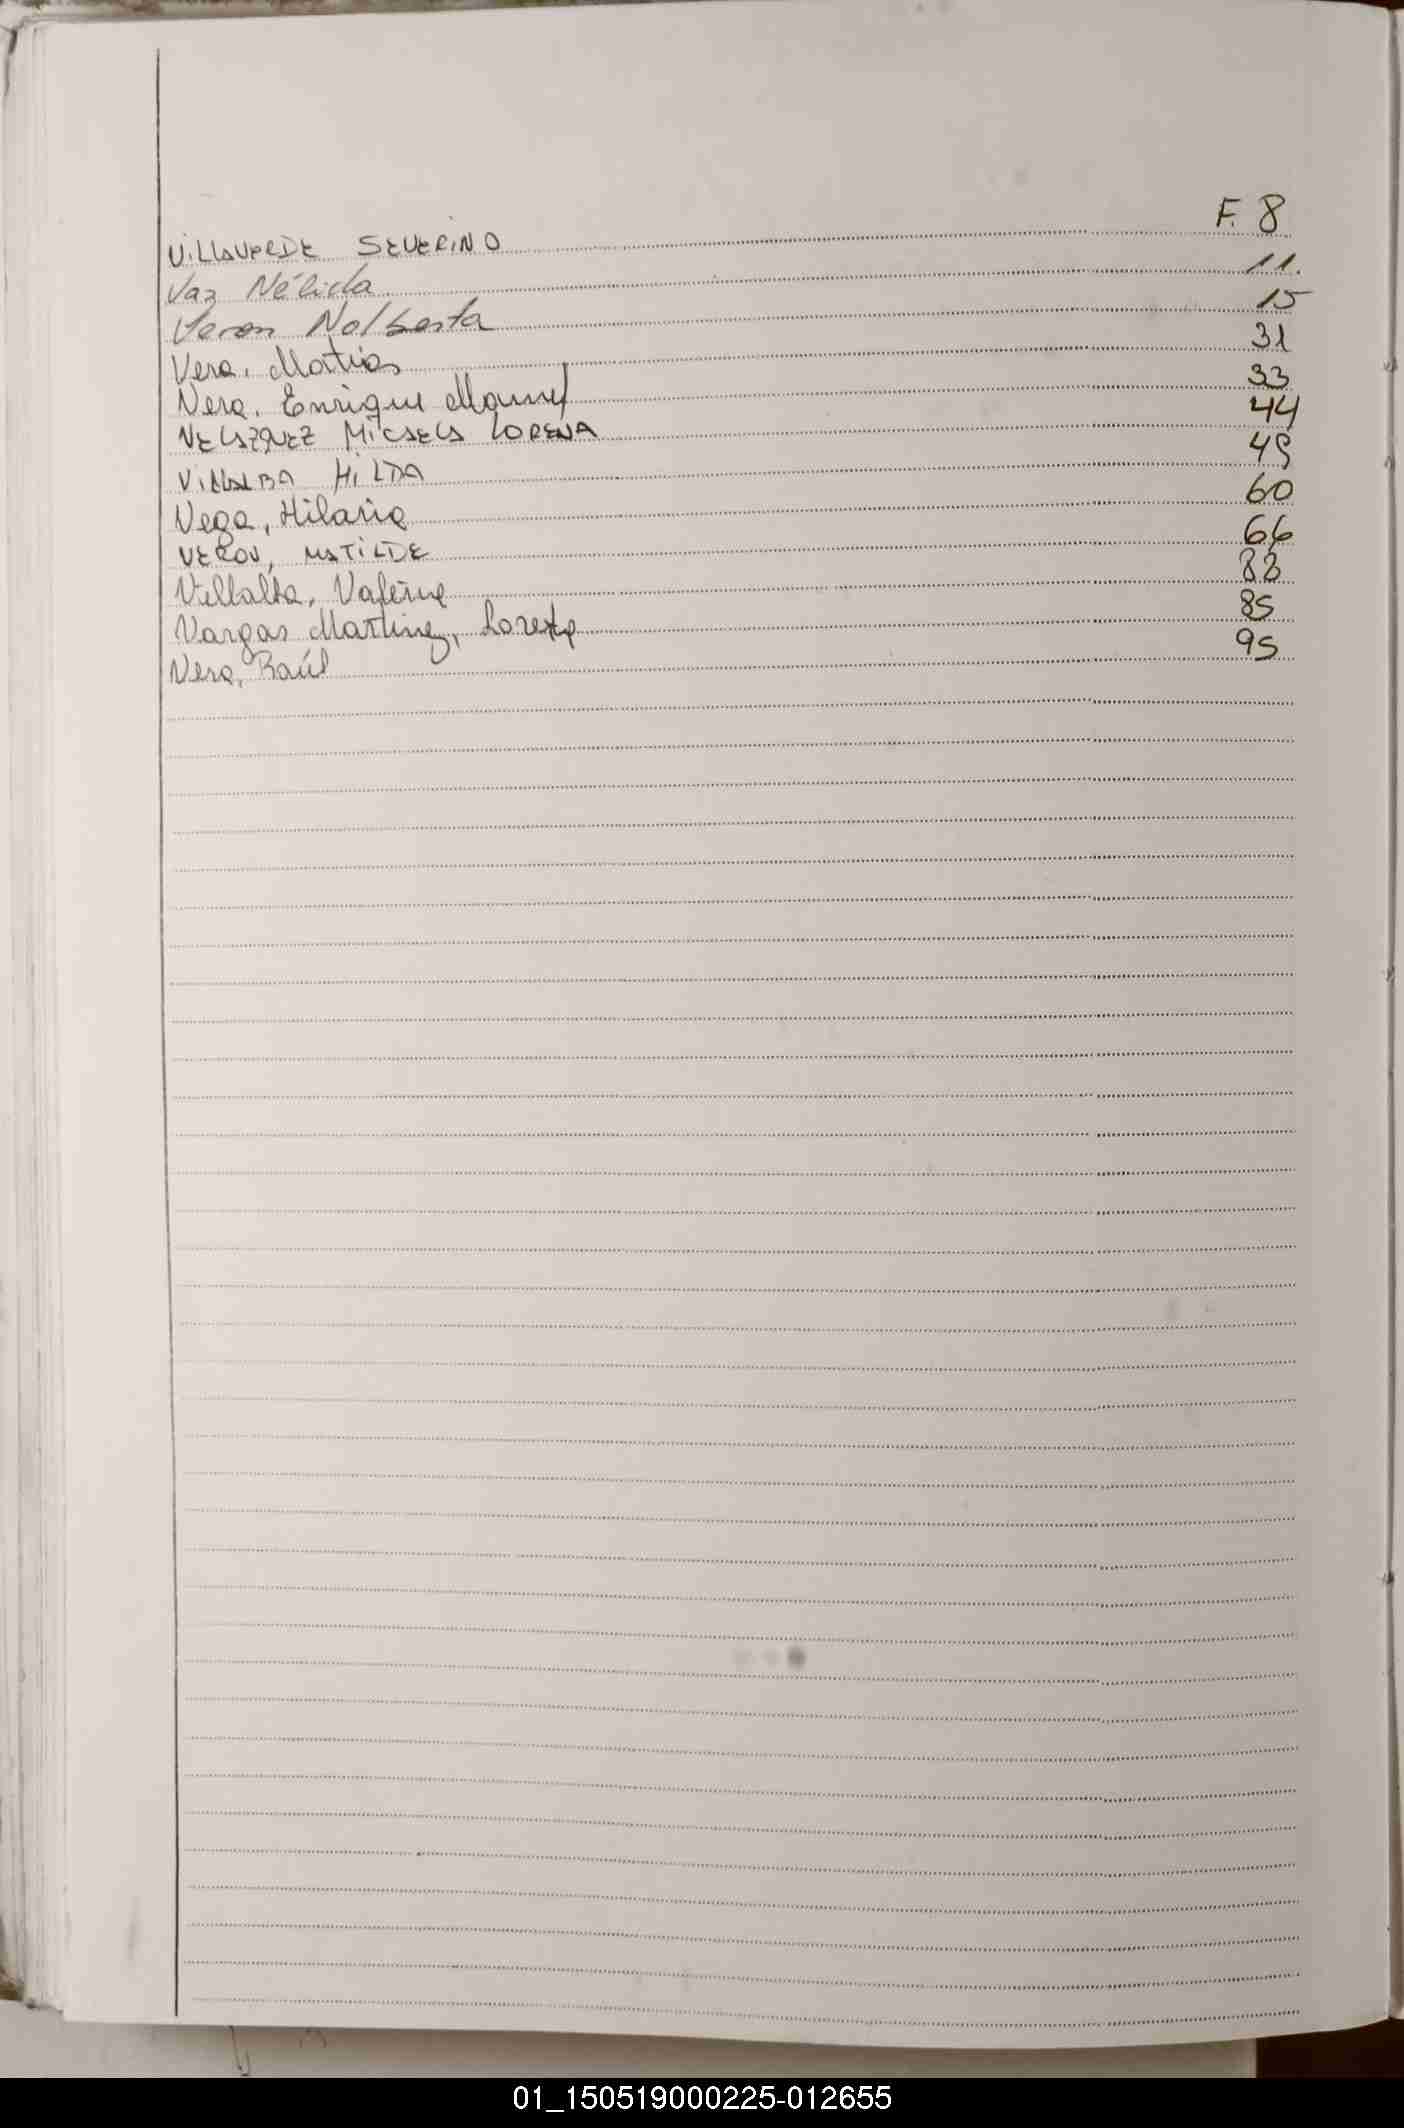 VILLAVERDE SEVERINO F. 8
Vaz Nélida 11.
Veron Nolberta 15
Vera, Matias 31
Vera, Enrique Manuel 33
VELAZQUEZ MICAELA LORENA 44
VILLALBA HILDA 49
Vega, Hilario 60
VERON, MATILDE 66
Villalba, 88
Vargas Martinez, 85
Vera, Raúl 95
01_150519000225-012655